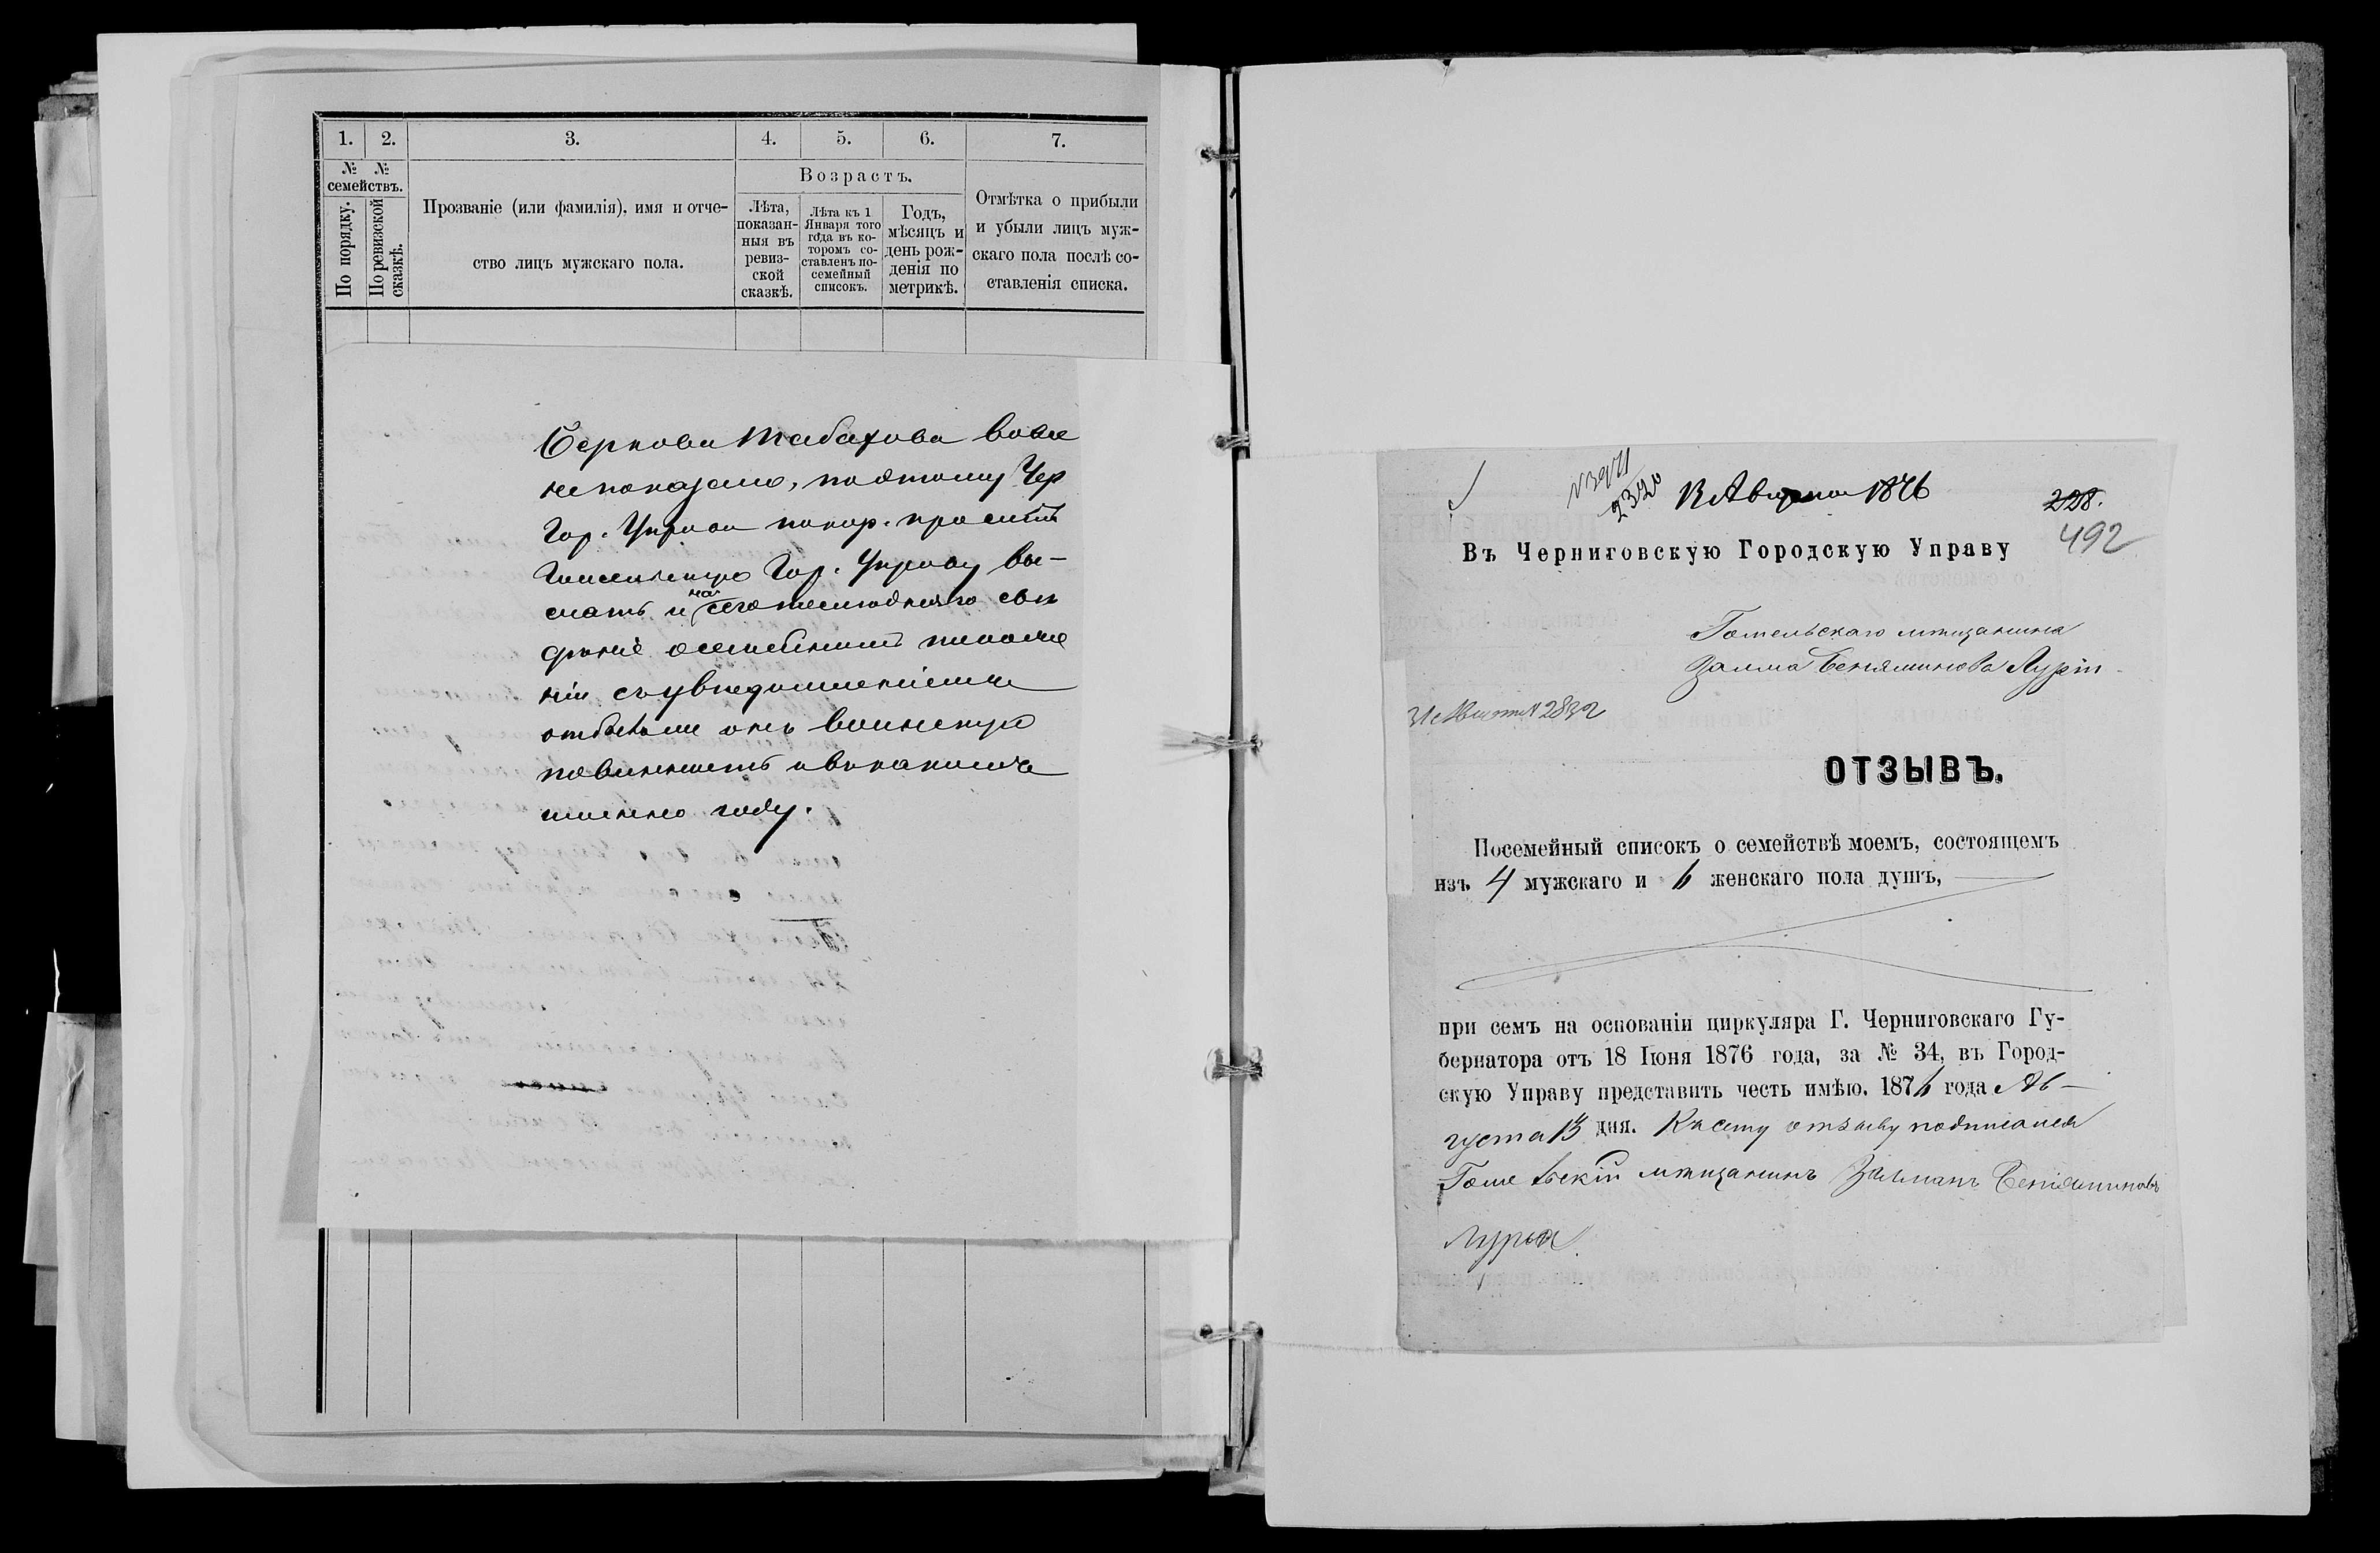 1. 2. 3. 4. 5. 6. 7.
№ №
семействъ.
По порядку.
По ревизской сказкѣ.
Прозваніе (или фамилія), имя и отче-
ство лицъ мужскаго пола.
Возрастъ.
Лѣта,
показан-
ныя въ
ревиз-
ской
сказкѣ.
Лѣта къ 1
Января того
года въ ко-
торомъ со-
ставленъ по-
семейный
списокъ.
Годъ,
мѣсяцъ и
день рож-
денія по
метрикѣ.
Отмѣтка о прибыли
и убыли лицъ муж-
скаго пола послѣ со-
ставленія списка.
Беркова Табахова вовсе
не показано, поэтому Чер
Гор. Управа покор. проситъ
Гор. Управу вы-
слать и на
о семейномъ положе
ніи съ увѣдомленіемъ
отбывали онъ воинскую
повинность и въ какомъ
именно году.
2320 13 Августа 1876
228.
492
Въ Черниговскую Городскую Управу
Гомельскаго мѣщанина
Залмана Беняминова Лурія
31 Августа № 2832
ОТЗЫВЪ.
Посемейный списокъ о семействѣ моемъ, состоящемъ
изъ 4 мужскаго и 6 женскаго пола душъ,
при семъ на основаніи циркуляра Г. Черниговскаго Гу-
бернатора отъ 18 Іюня 1876 года, за № 34, въ Город-
скую Управу представить честь имѣю. 1876 года Ав-
густа 13 дня. К сему отзыву подписался
Гомельскій мѣщанинъ Залманъ Беніаминовъ
Лурья